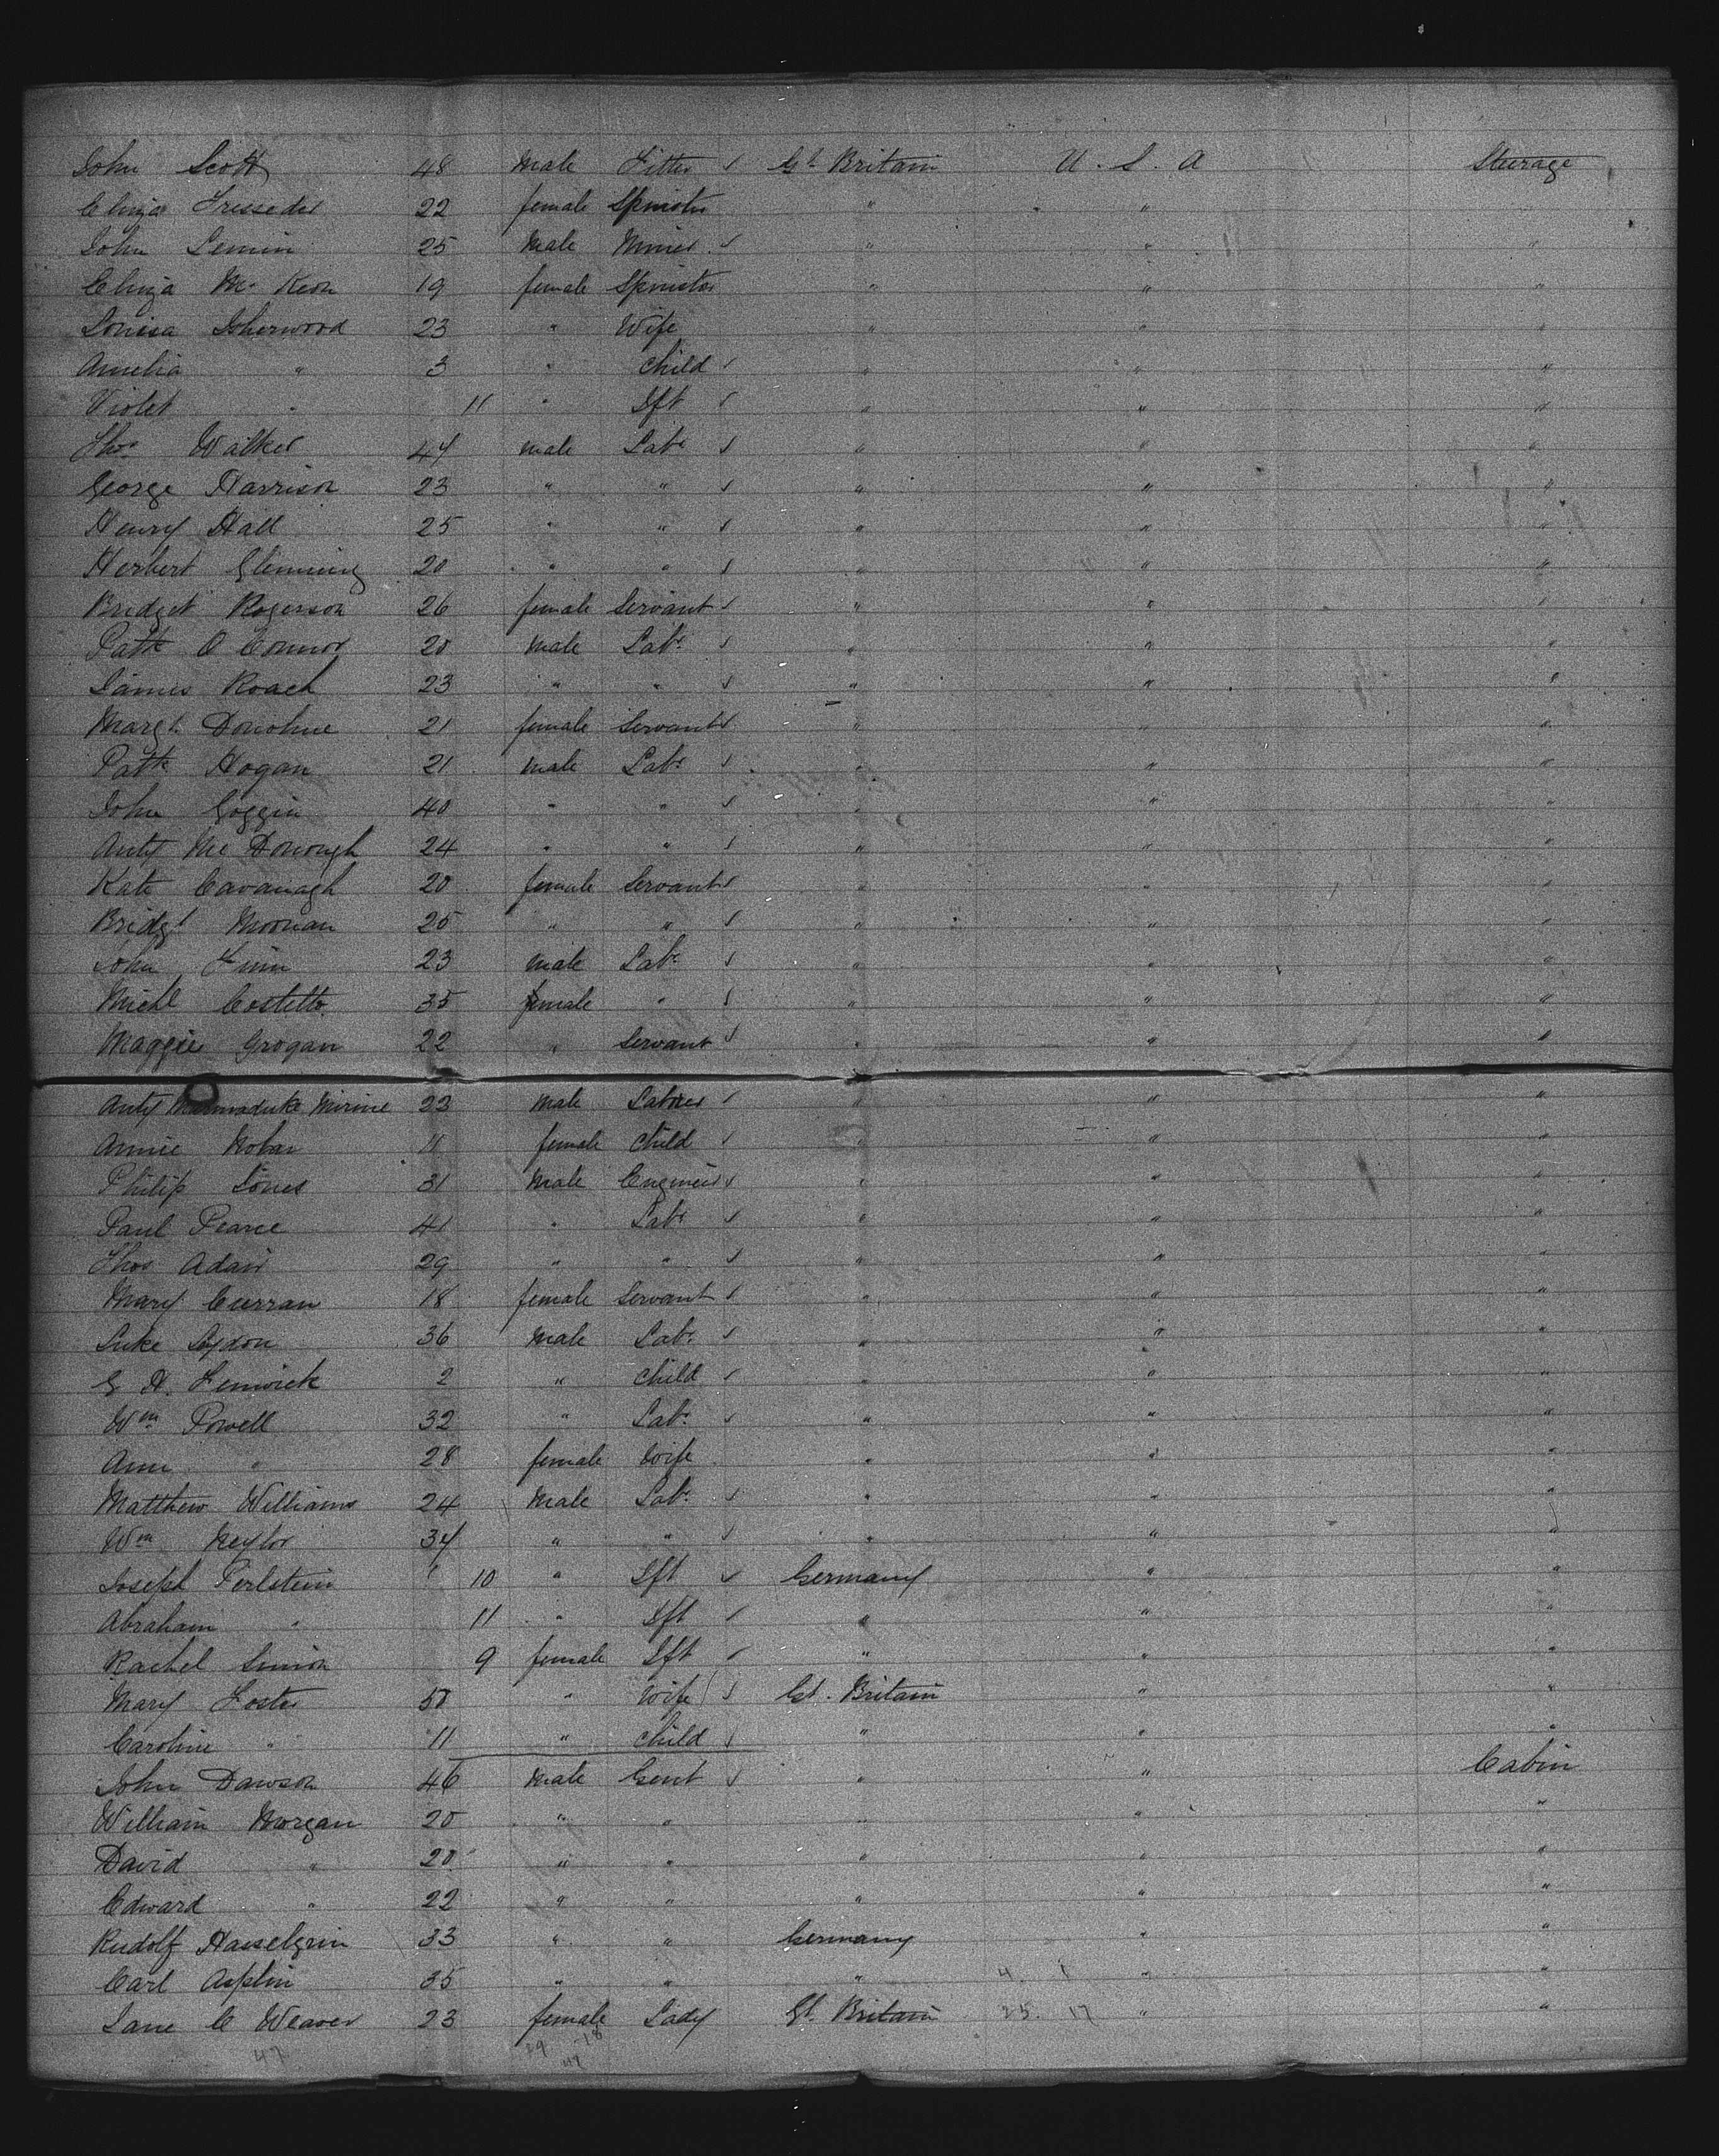 John Scott 48 Male Fitter ✓ Gt Britain U. S. A Steerage
Eliza Tresseder 22 female Spinster " " "
John Lemin 25 Male Miner ✓ " " "
Eliza Mc Keon 19 female Spinster " " "
Louisa Isherwood 23 " Wife " " "
Amelia " 3 " Child ✓ " " "
Violet " 11 " Ift ✓ " " "
Thos Walker 44 male Labr ✓ " " "
George Harrison 23 " " ✓ " " "
Henry Hall 25 " " ✓ " " "
Herbert Glenning 20 " " ✓ " " "
Bridget Rogerson 26 female Servant ✓ " " "
Patk O Connor 20 Male Labr ✓ " " "
James Roach 23 " " ✓ " " "
Margt Donohue 21 female Servant ✓ " " "
Patk Hogan 21 male Labr ✓ " " "
John Goggin 40 " " ✓ " " "
Anty Mc Donough 24 " " ✓ " " "
Kate Cavanagh 20 female Servant ✓ " " "
Bridgt Moonan 25 " " ✓ " " "
John Finn 23 male Labr ✓ " " "
Michl Costello 35 female " ✓ " " "
Maggie Grogan 22 " Servant ✓ " " "
Anty Marmaduke 23 Male Laborer ✓ " " "
Annie 11 female child ✓ " " "
Philip Jones 31 Male Engineer ✓ " " "
Paul Pearce 41 " Labr ✓ " " "
Thos Adair 29 " " ✓ " " "
Mary Curran 18 female Servant ✓ " " "
Luke Lydon 36 Male Labr ✓ " " "
G H. Fenwick 2 " Child ✓ " " "
Wm Powell 32 " Labr ✓ " " "
Ann " 28 female Wife " " "
Matthew Williams 24 Male Labr ✓ " " "
Wm 34 " " ✓ " " "
Joseph Perlstein 10 " Ift ✓ Germany " "
Abraham " 11 " Ift ✓ " " "
Rachel Simon 9 female Ift ✓ " " "
Mary Foster 50 " Wife ✓ Gt. Britain " "
Caroline " 11 " Child ✓ " " "
John Dawson 46 Male Gent ✓ " " Cabin
William Morgan 20 " " " " "
David " 20 " " " " "
Edward " 22 " " " " "
Rudolf Hasselgrin 33 " " Germany " "
Carl Asplin 35 " " " 4. 1 " "
Jane C Weaver 23 female Lady Gt. Britain 25. 17 " "
47 29 18
47